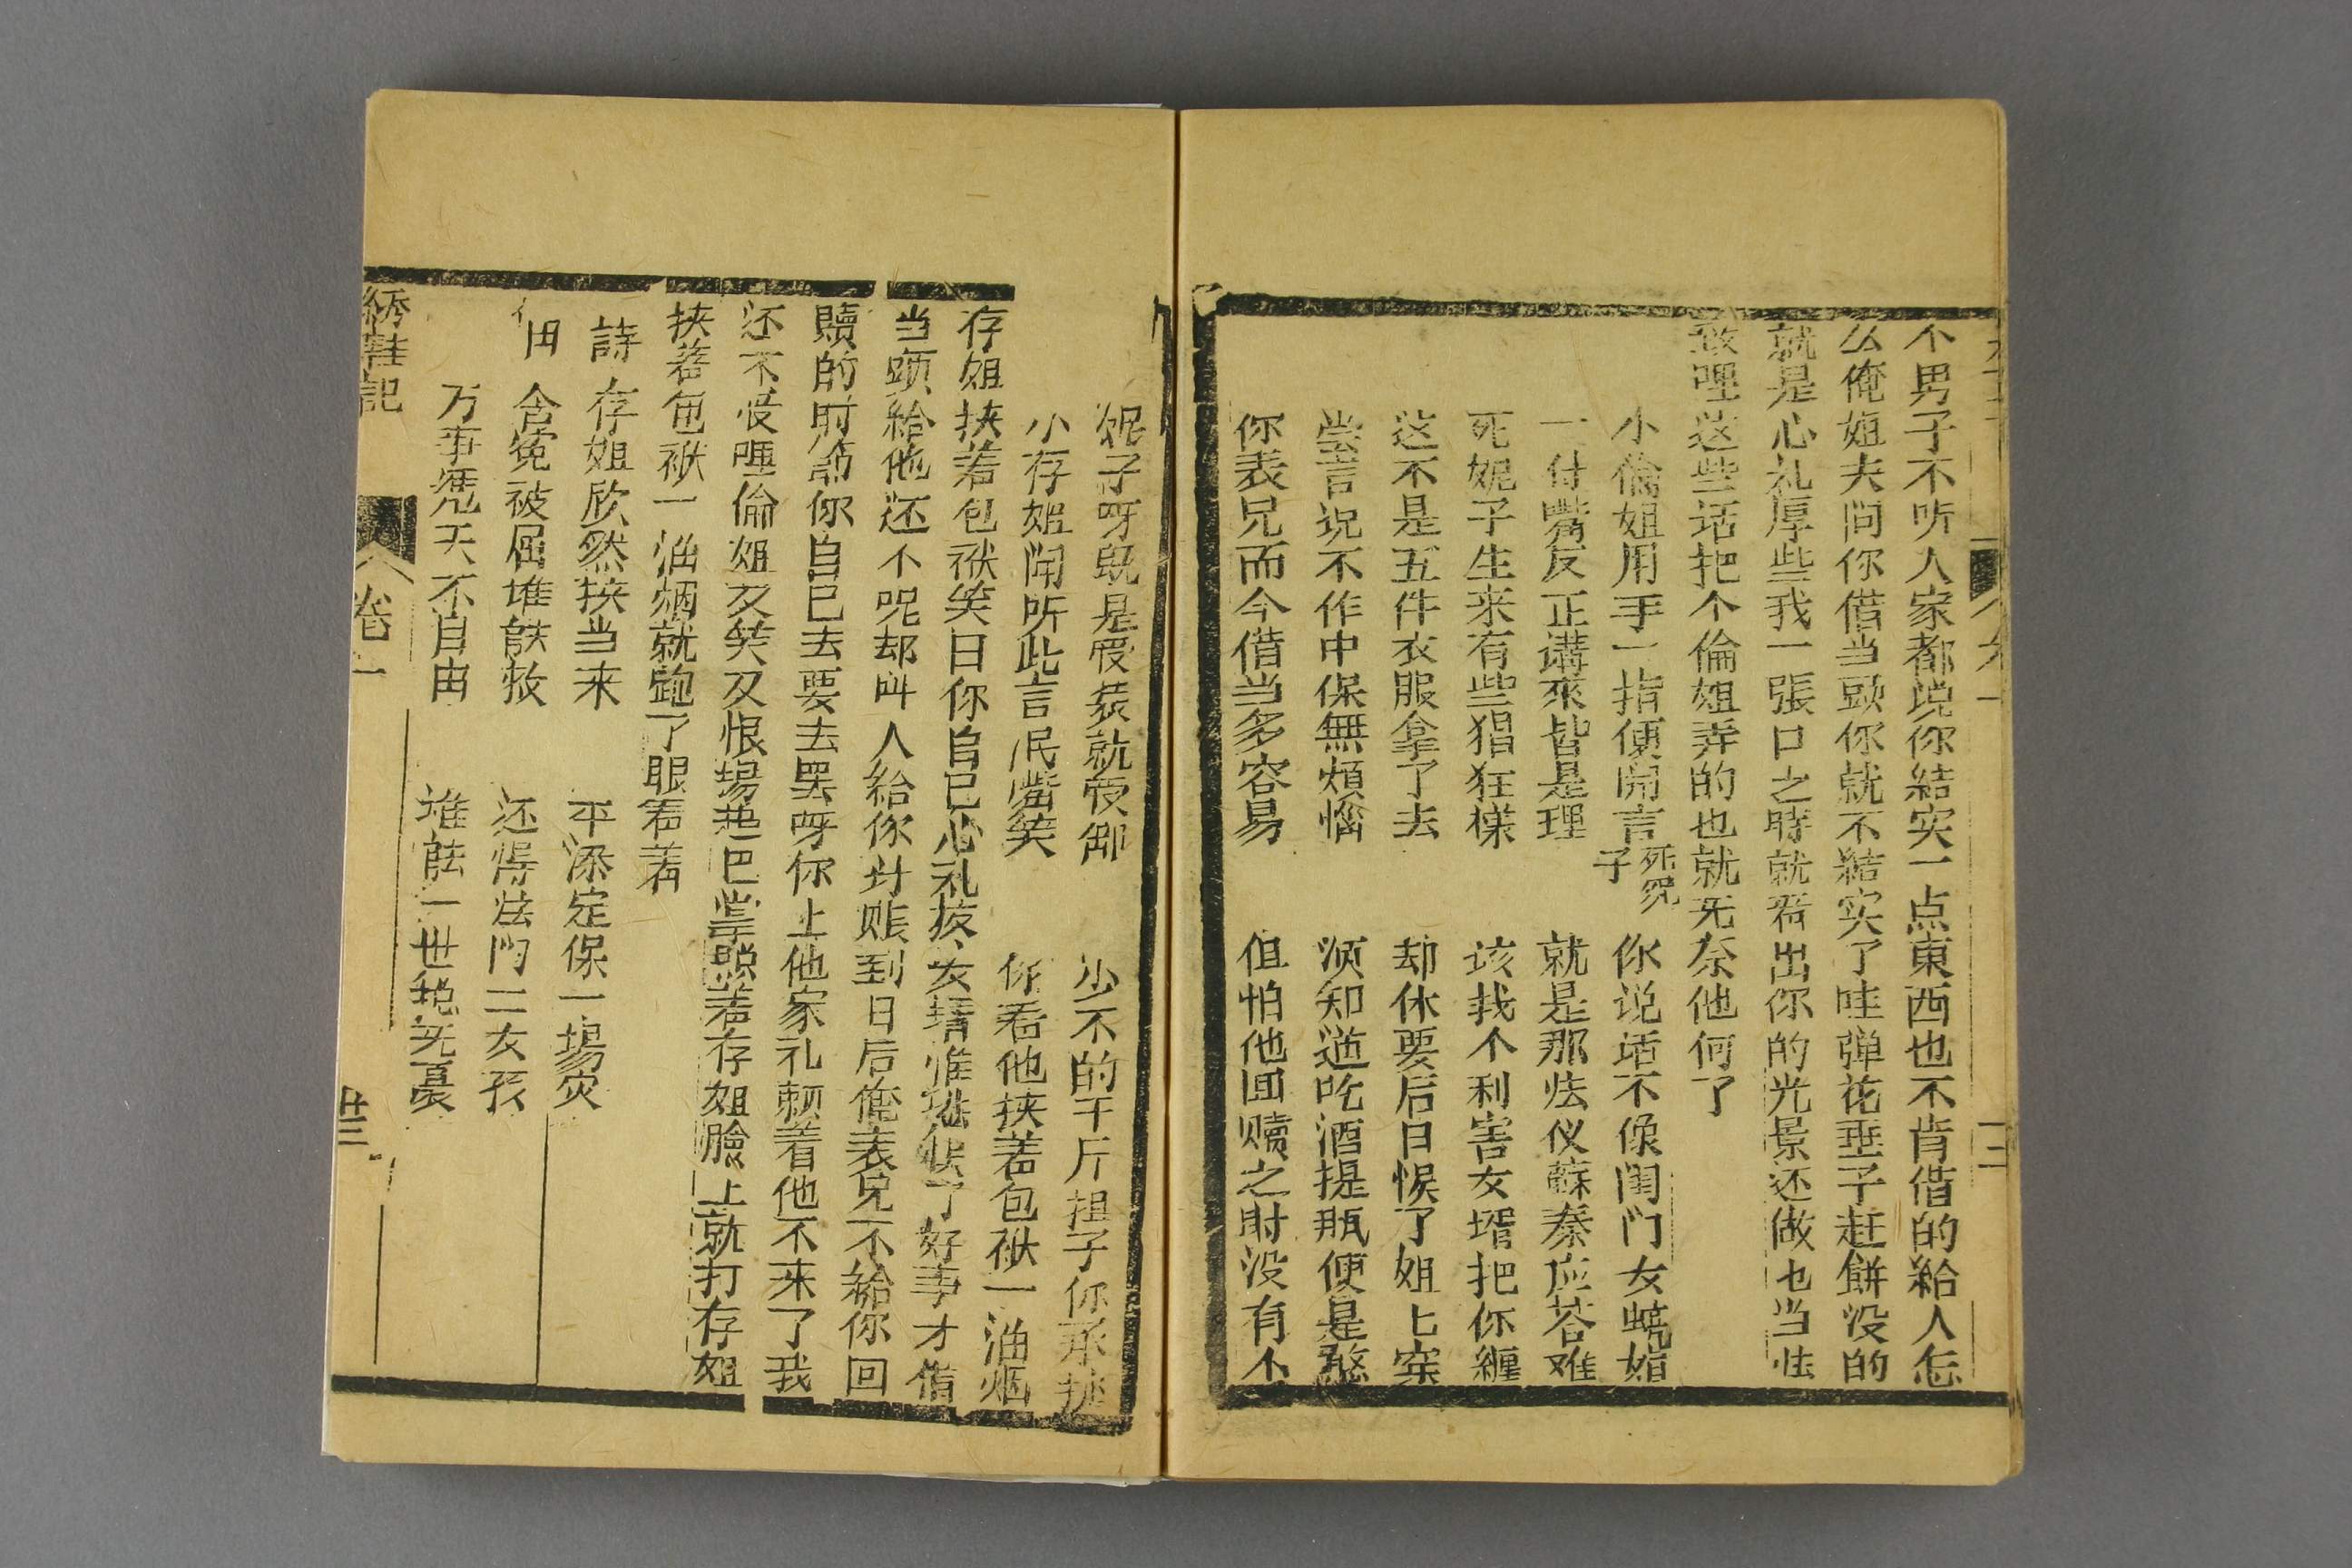 不男子不听人家都说你結实一点東西也不肯借的給人怎
么俺姐夫问你借当頭你就不結实了哇弹花垂子赶餅没的
就是心礼厚些我一張口之時就看出你的光景还做也当怯
敢哩这些话把个倫姐弄的也就无奈他何了
小倫姐用手一指便開言 死冤子 你说话不像闺门女
一付嘴反正講來皆是理 就是那 仪蘇秦应答难
死妮子生来有些猖狂樣 该找个利害女壻把你纏
这不是五件衣服拿了去 却休要后日悞了姐上
尝言说不作中保無煩惱 须知道吃酒提瓶便是憨
你表兄而今借当多容易 但怕他回赎之时没有个
妮子呀既是 装就 少不的千斤担子你承
小存姐闻听此言 嘴笑 你看他挟着包袱一油烟
存姐挟着包袱笑曰你自已心礼 女壻 了好事才借
当頭給他还不呢却叫人給你 账到日后俺表兄不給你回
贖的时 你自已去要去罢呀你上他家礼 着他不来了我
还不 哩倫姐又笑又恨揚 巴掌照着存姐臉上就打存姐
挟着包袱一油烟就跑了眼看着
詩 存姐欣然挟当来 平添定保一場灾
曰 含冤被屈堆 还得 门二女孩
万事凭天不自由 谁能一世 无憂
綉鞋記
卷一
廿三